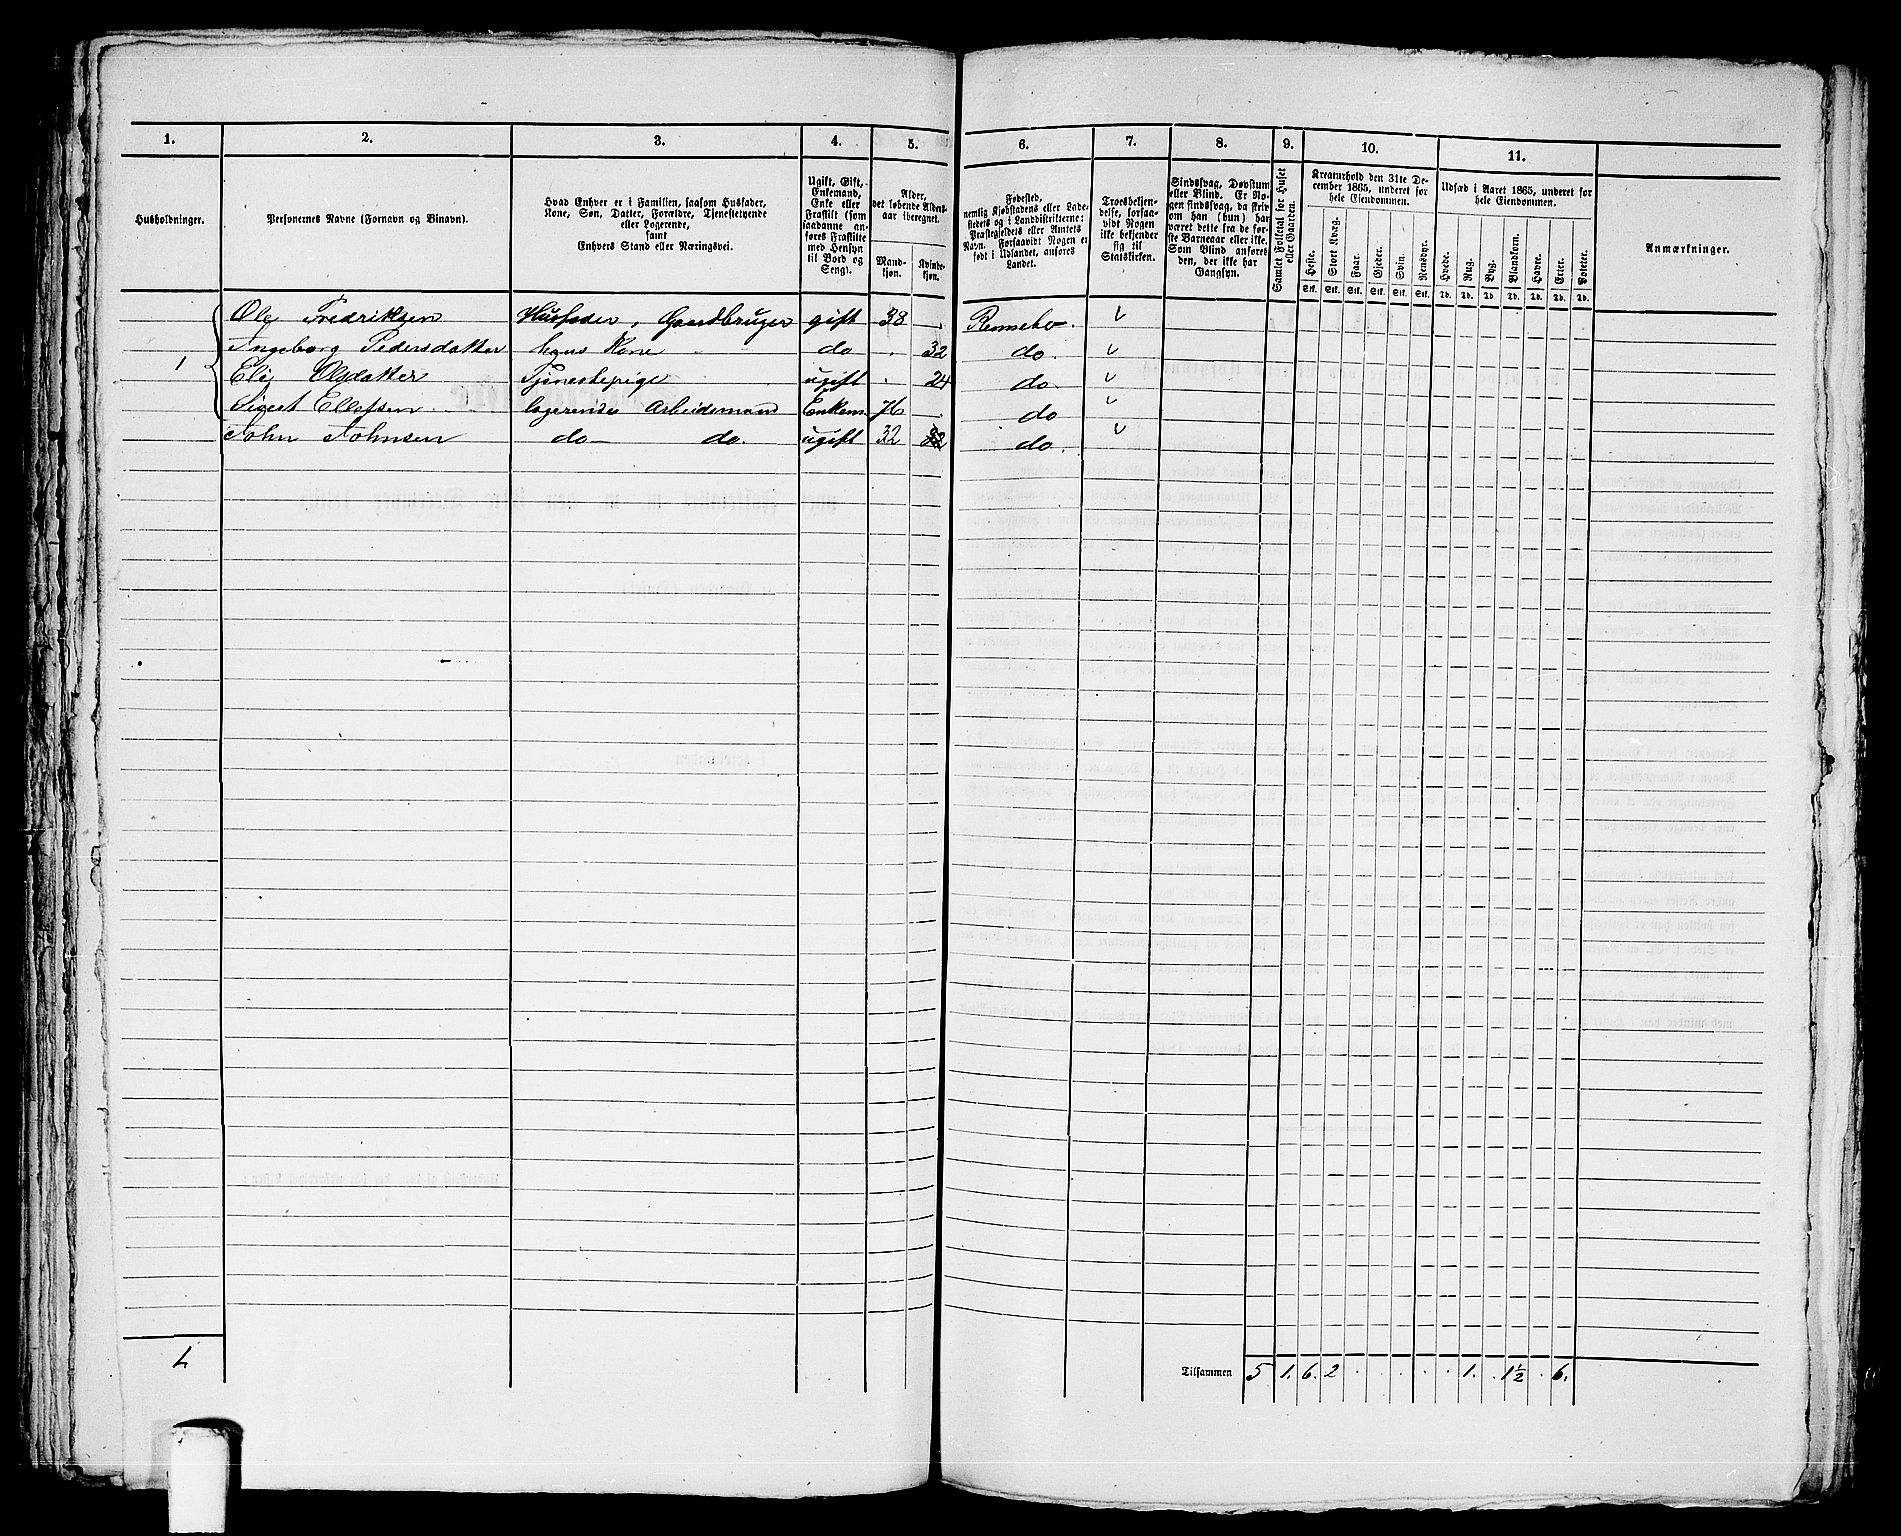 1. 2. 3. 4. 5. 6. 7. 8. 9. 10. 11.
Husholdninger.
Personernes Navne (Fornavn og Binavn).
Hvad Enhver er i Familien, saasom Husfader,
Kone, Søn, Datter, Forældre, Tjenestetyende
eller Logerende,
samt
Enhvers Stand eller Næringsvei.
Ugift, Gift,
Enkemand,
Enke eller
Fraskilt (som
saadanne an-
føres Fraskilte
med Hensyn
til Bord og
Seng).
Alder,
det løbende Alders-
aar iberegnet.
Mand-
kjøn.
Kvinde-
kjøn.
Fødested,
nemlig Kjøbstadens eller Lade-
stedets og i Landdistrikterne:
Præstegjeldets eller Amtets
Navn. Forsaavidt Nogen er
født i Udlandet, anføres
Landet.
Troesbekjen-
delse, forsaa-
vidt Nogen
ikke bekjender
sig til
Statskirken.
Sindssvag, Døvstum
eller Blind. Er No-
gen sindssvag, da skriv
om han (hun) har
været dette fra de før-
ste Barneaar eller ikke.
Som Blind anføres
den, der ikke har
Gangsyn.
Samlet Folketal for Huset
eller Gaarden.
Kreaturhold den 31te De-
cember 1865, underet for
hele Eiendommen.
Heste. Stort Kvæg. Faar. Gjeder. Svin. Rensdyr.
Stk. Stk. Stk. Stk. Stk. Stk.
Udsæd i Aaret 1865, underet for
hele Eiendommen.
Hvede. Rug. Byg. Blandkorn. Havre. Erter. Poteter.
Td. Td. Td. Td. Td. Td. Td.
Anmærkninger.
Ole Fredriksen Husfader, Gaardbruger gift 38 Rennebo.
Ingeborg Pedersdatter hans Kone do 32 do.
1
Eli Olsdatter Tjenestepige ugift 24 do.
Sivert Ellefsen logerende Arbeidsmand Enkem 76 do
John Johnsen do do. ugift 32 do.
1
Tilsammen 5 1. 6. 2 1. 1½ 6.